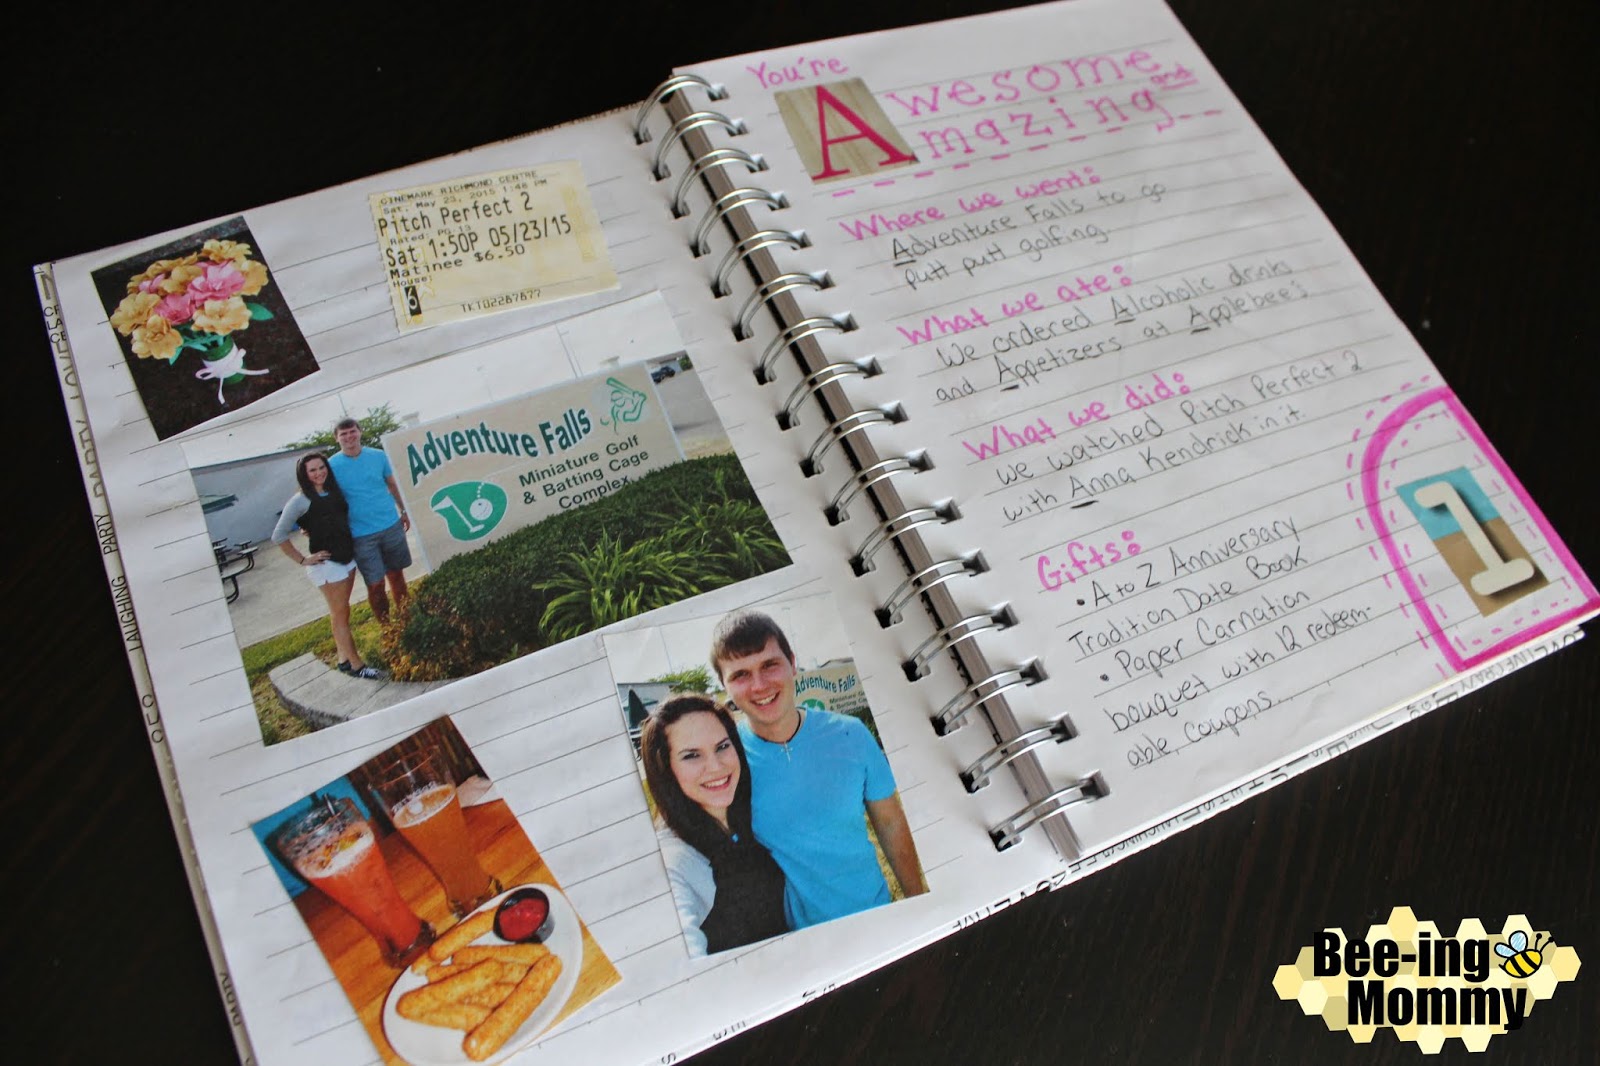 CINEMARK RICHMOND CENTRE
Sat. May 23, 2015 1:48 PM
Pitch Perfect 2
Rated: PG-13
Sat 1:50P 05/23/15
Matinee $6.50
House:
6
Adventure Falls
Miniature Golf
& Batting Cage
Complex
Adventure Falls
Miniature Golf
LAUGHING PARTY
You're
Awesome and
Amazing
Where we went:
Adventure Falls to go
putt putt golfing.
What we ate:
We ordered Alcoholic drinks
and Appetizers at Applebee's
What we did:
we watched Pitch Perfect 2
with Anna Kendrick in it.
Gifts:
• A to Z Anniversary
Tradition Date Book
• Paper Carnation
bouquet with 12 redeem-
able, coupons...
1
Bee-ing
Mommy